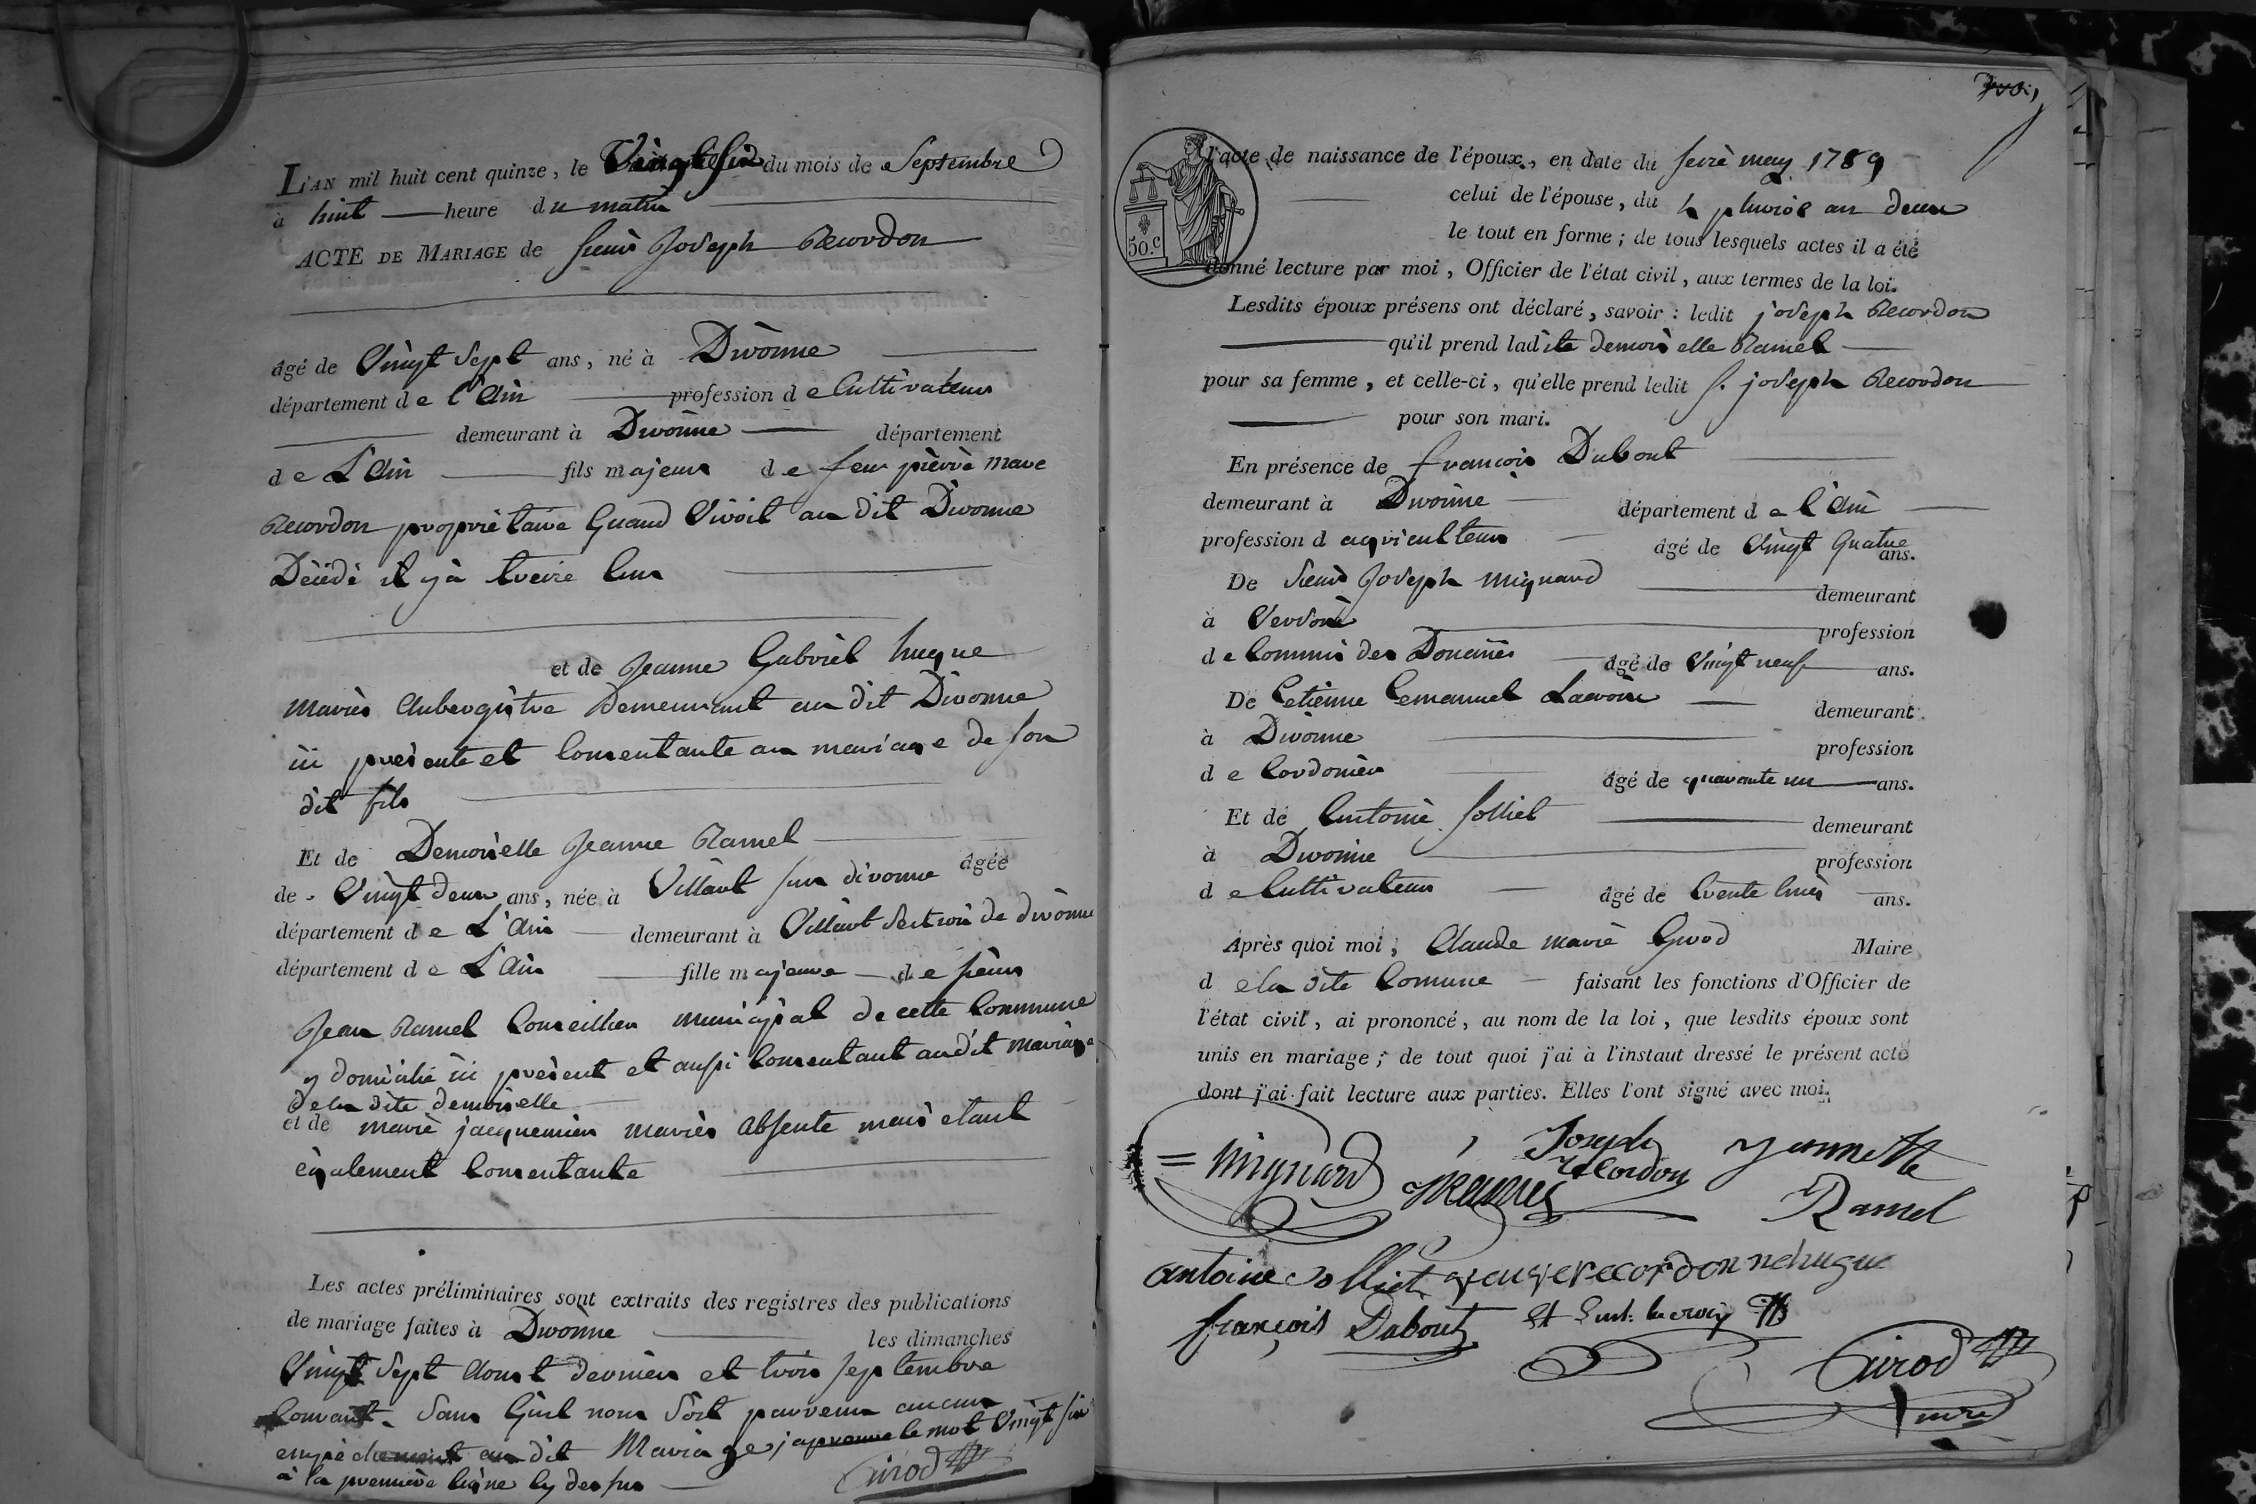 L'AN mil huit cent quinze, le Vingt six du mois de Septembre
à huit heure du matin
ACTE DE MARIAGE de sieur Joseph Recordon
âgé de Vingt Sept ans, né à Divonne
département de l'Ain profession de Cultivateur
demeurant à Divonne département
de L'Ain fils majeur de feu pierre marc
Recordon propriétaire Quand Vivoit au dit Divonne
Décédé il y à treize
et de Jeanne Gabriel hugue
Aubergiste Demeurant au dit Divonne
ici présente et Consentante au mariage de son
dit fils
Et de Demoiselle Jeanne Ramel âgée
de Vingt deux ans, née à Villard sur divonne
département de L'Ain demeurant à Villard Section de divonne
département de L'Ain fille majeure de sieur
Jean Ramel Conseiller municipal de cette Commune
y domicilié ici présent et aussi Consentant audit mariage
de la dite demoiselle
et de marie jacquemier absente mais etant
également Consentante
Les actes préliminaires sont extraits des registres des publications
de mariage faites à Divonne les dimanches
Vingt Sept Aoust dernier et trois septembre
Courant. Sans Quil nous Soit parvenu aucun
empechement au dit Mariage, japrouve le mot Vingt six
à la première ligne cy dessus Girod
l'acte de naissance de l'époux, en date du seize may 1789
50.C
celui de l'épouse, du 4 pluviôse an deux
le tout en forme ; de tous lesquels actes il a été
donné lecture par moi, Officier de l'état civil, aux termes de la loi.
Lesdits époux présens ont déclaré, savoir : ledit joseph Recordon
qu'il prend ladite demoiselle Ramel
pour sa femme, et celle-ci, qu'elle prend ledit S. joseph Recordon
pour son mari.
En présence de francois Dubout
demeurant à Divonne département de l'Ain
profession d agriculteur âgé de Vingt Quatre ans.
De Sieur Joseph mignard demeurant
à profession
de Commis des Douanes âgé de Vingt neuf ans.
De Etienne Emanuel Lacroix demeurant
à Divonne profession
de Cordonier âgé de quarante un ans.
Et de Antoine Solliet demeurant
à Divonne profession
de Cultivateur âgé de trente ans.
Après quoi moi, Claude marie Girod Maire
de la dite Comune faisant les fonctions d'Officier de
l'état civil, ai prononcé, au nom de la loi, que lesdits époux sont
unis en mariage ; de tout quoi j'ai à l'instaut dressé le présent acte
dont j'ai fait lecture aux parties. Elles l'ont signé avec moi.
Mignard Joseph Recordon Jannette Ramel
antoine Solliet recordon néhugue
françois Dabout Et Em: lacroix
Girod